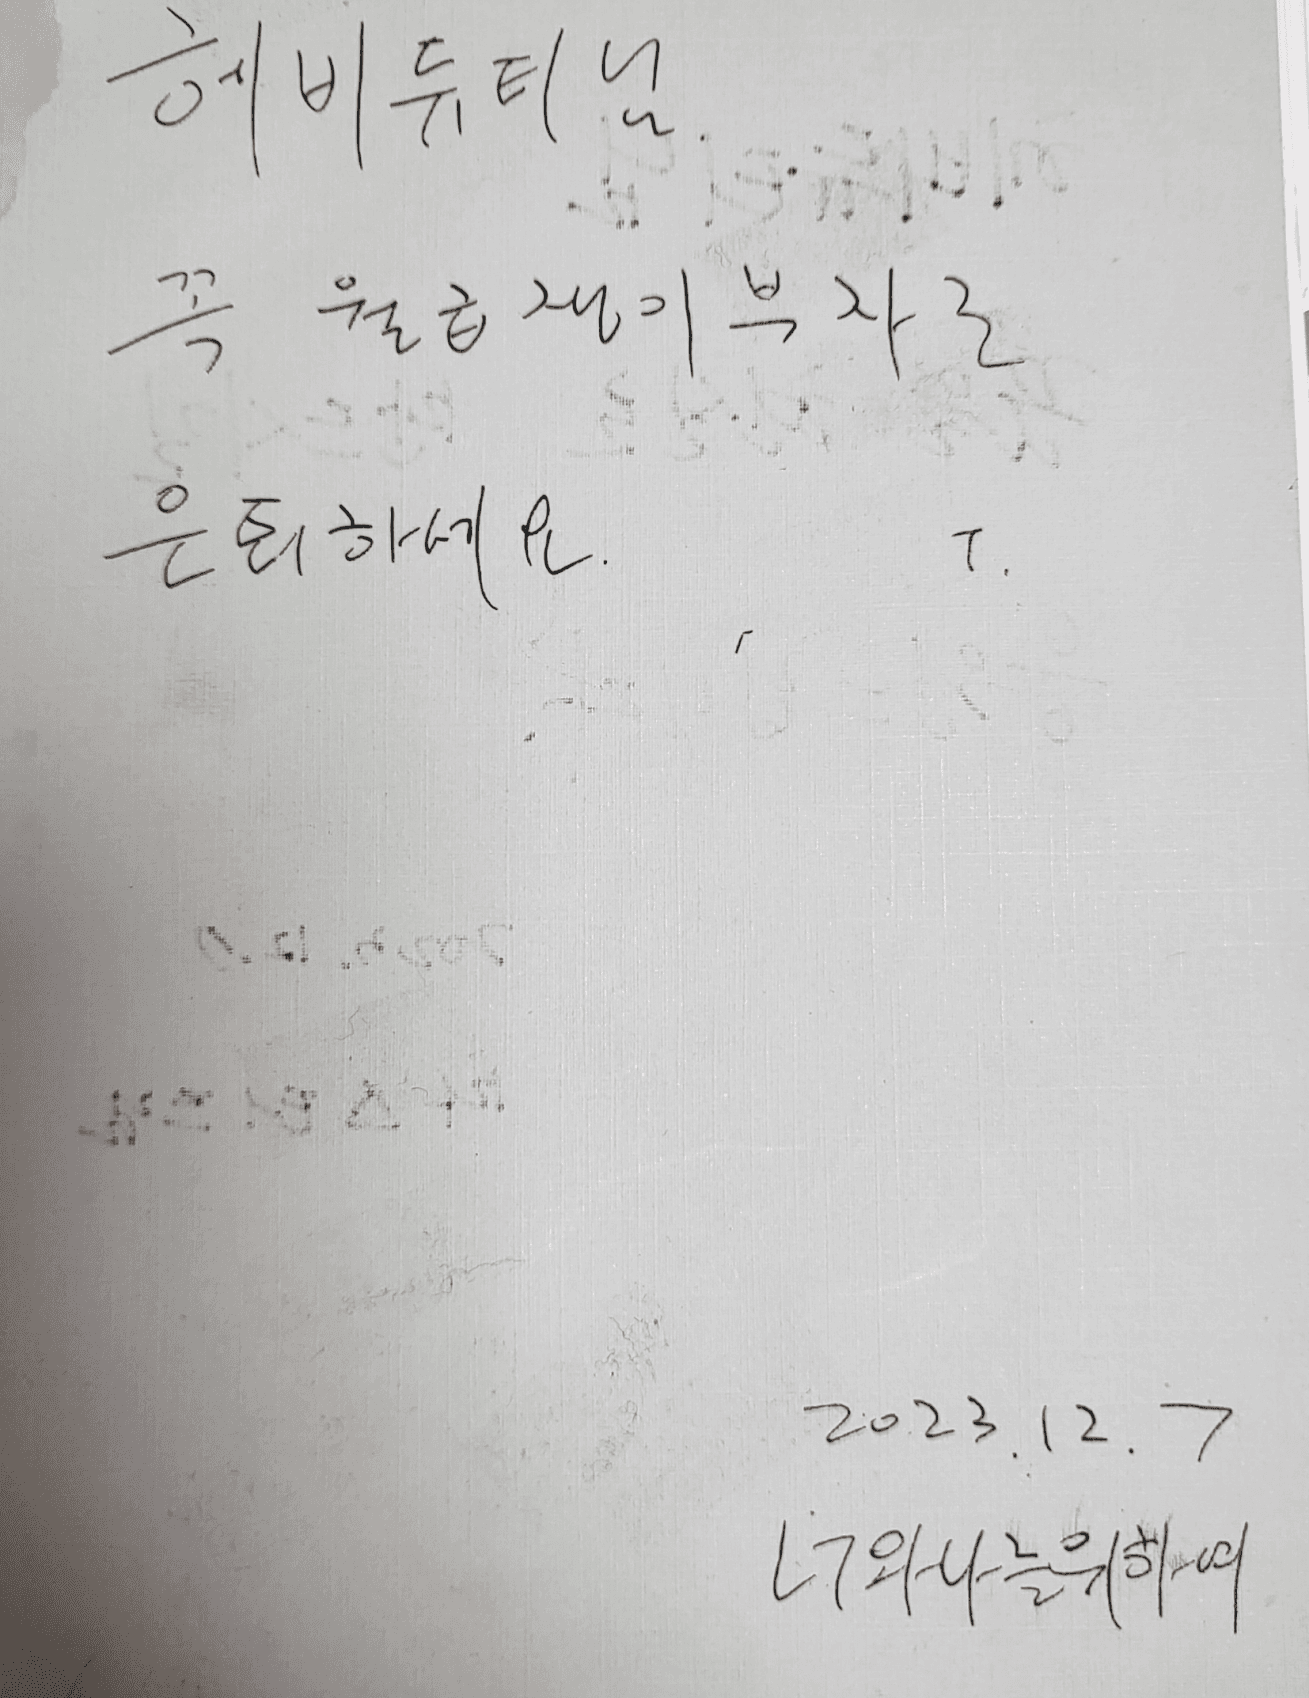 헤비듀티님
꼭 월급쟁이부자로
은퇴하세요.
2023.12.7
너와나를위하여